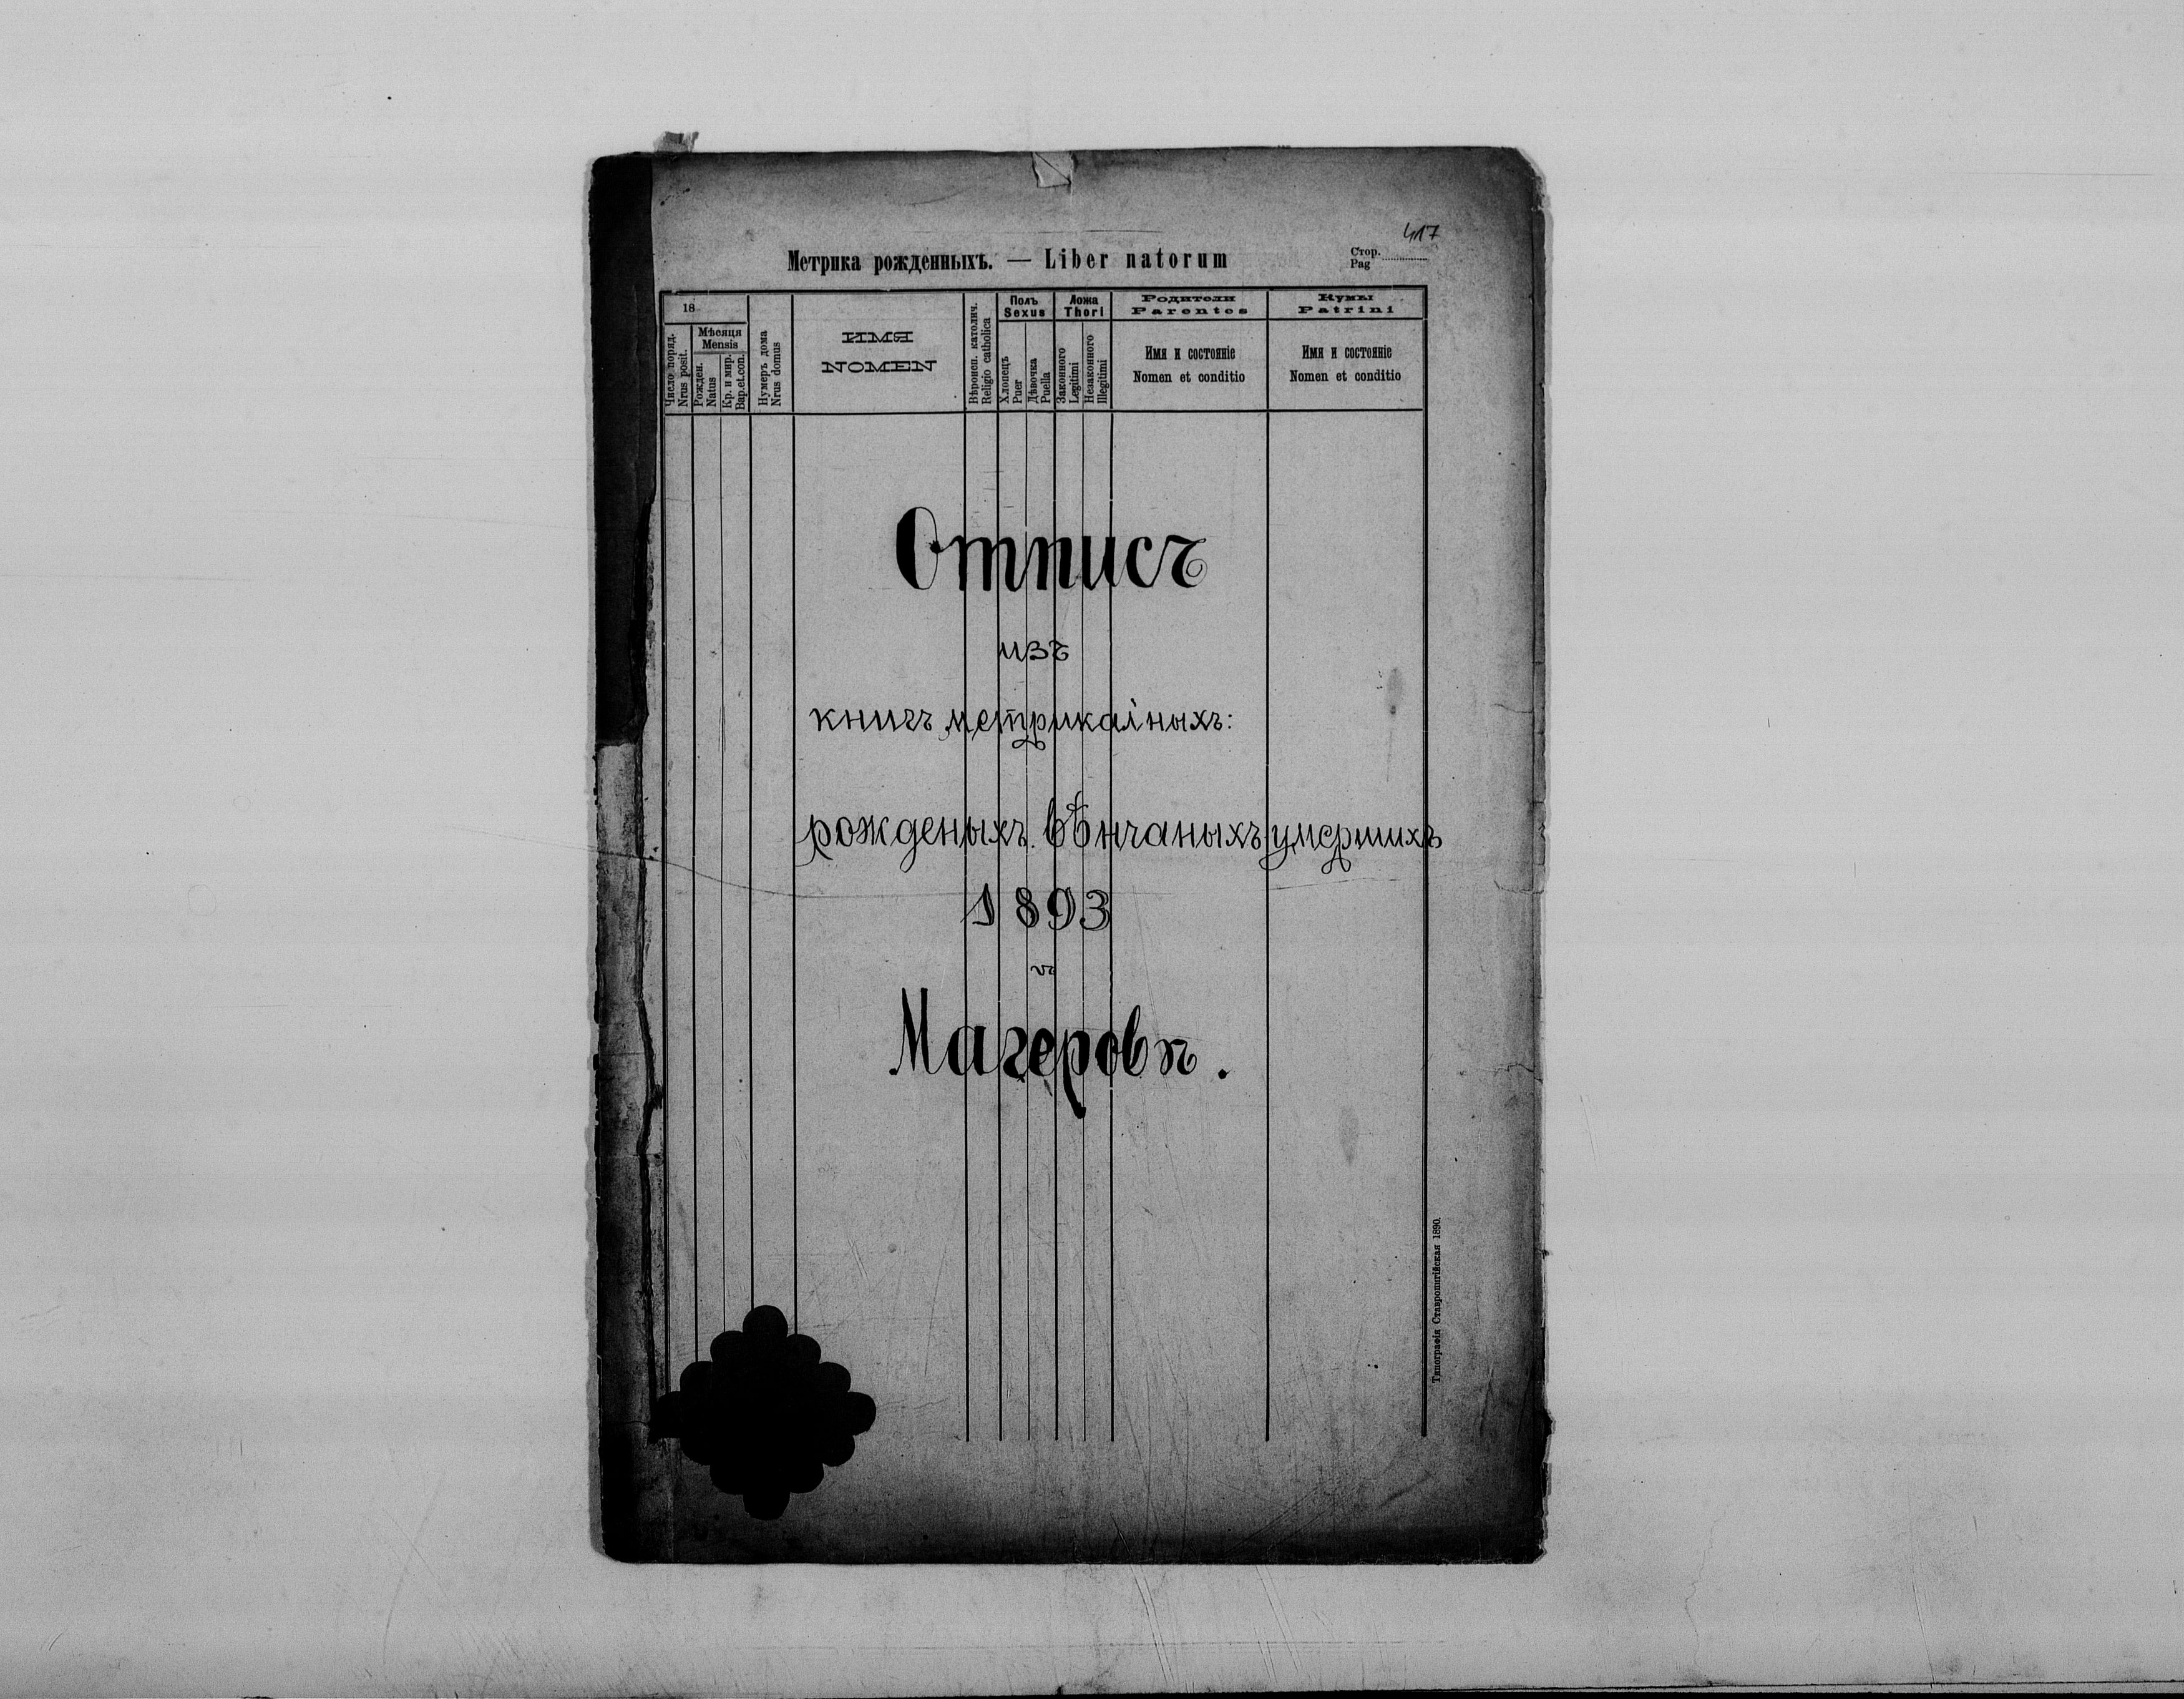 417
Метрика рожденныхъ. — Liber natorum
Стор.
Pag
18
Число поряд.
Nrus posit.
Мѣсяця
Mensis
Рожден.
Natus
Кр. и мир.
Bap.et.con.
Нумеръ дома
Nrus domus
ИМЯ
NOMEN
Вѣроисп. католич.
Religio catholica
Полъ
Sexus
Хлопецъ
Puer
Дѣвочка
Puella
Ложа
Thori
Законного
Legitimi
Незаконного
Illegitimi
Родители
Parentes
Имя и состоянiе
Nomen et conditio
Кумы
Patrini
Имя и состоянiе
Nomen et conditio
Отписъ
изъ
книгъ метрикаiныхъ:
рожденыхъ. вѣнчаныхъ умершихъ
1893
въ
Магеровъ.
Типографiя Ставропигiйская 1890.